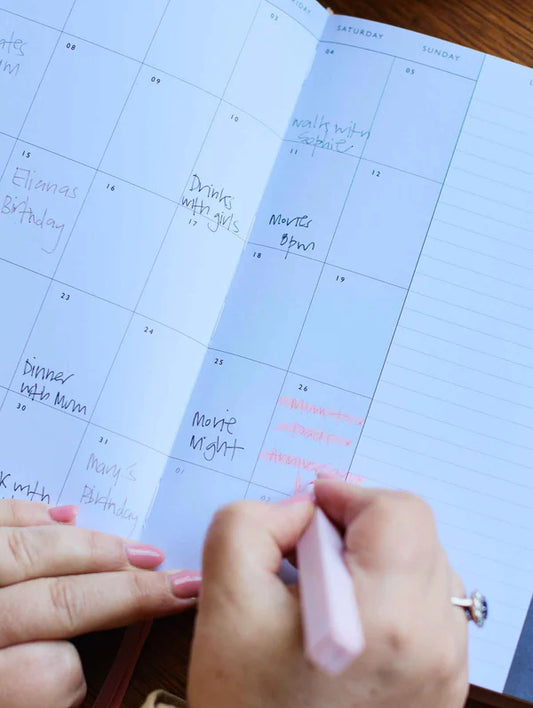 SATURDAY
SUNDAY
03
04
05
08
09
10
11
12
walks with
Sophie
15
16
17
18
19
Elianas
Birthday
Drinks
with girls
Movies
8pm
23
24
25
26
Dinner
with Mum
Movie
Night
30
31
01
02
Mary's
Birthday
with